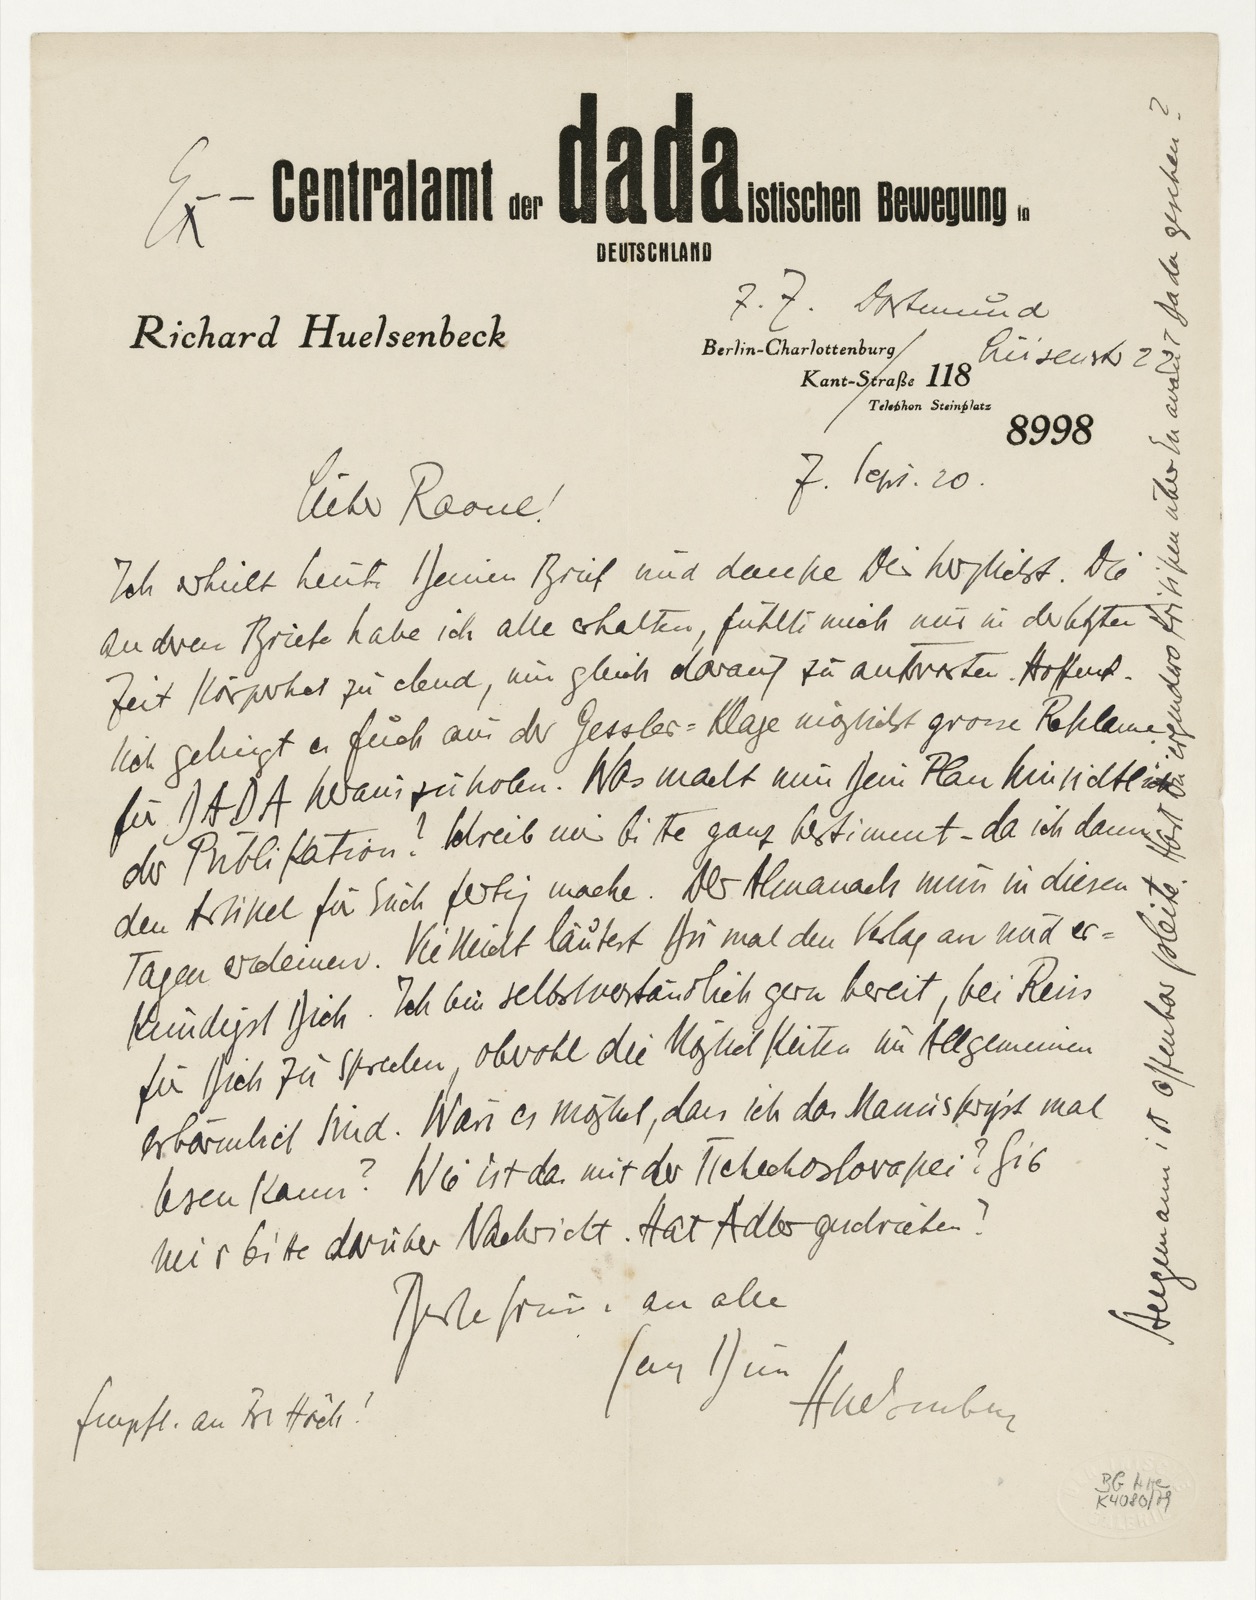 Ex-- Centralamt der dadaistischen Bewegung in
DEUTSCHLAND
Richard Huelsenbeck
z. Z. Dortmund
Berlin-Charlottenburg
Kant-Straße 118
Telephon Steinplatz
8998
7. Sept. 20.
Lieber Raoul!
Ich erhielt heute Deinen Brief und danke Dir herzlichst. Die
anderen Briefe habe ich alle erhalten, fühlte mich nur in der letzten
Zeit körperlich zu elend, um gleich darauf zu antworten. Hoffent-
lich gelingt es Euch aus der Gessler=Klage möglichst grosse Reklame
für DADA herauszuholen. Was macht nun Dein Plan hinsichtlich
der Publikation? Schreib mir bitte ganz bestimmt - da ich dann
den Artikel für Euch fertig mache. Der Almanach muss in diesen
Tagen erscheinen. Vielleicht läutest Du mal den Verlag an und er=
kundigst Dich. Ich bin selbstverständlich gern bereit, bei Reiss
für Dich zu sprechen, obwohl die Möglichkeiten im Allgemeinen
erbärmlich sind. Wäre es möglich, dass ich das Manuskript mal
lesen kann? Wie ist das mit der Tschechoslovakei? Gib
mir bitte darüber Nachricht. Hat Adler geschrieben?
Beste Grüsse an alle
Dein
Huelsenbeck
Empfl. an Frl Höch!
Stegemann ist offenbar pleite. Hast Du irgendwo Kritiken über En avant Dada gesehen?
BG
K4080/79